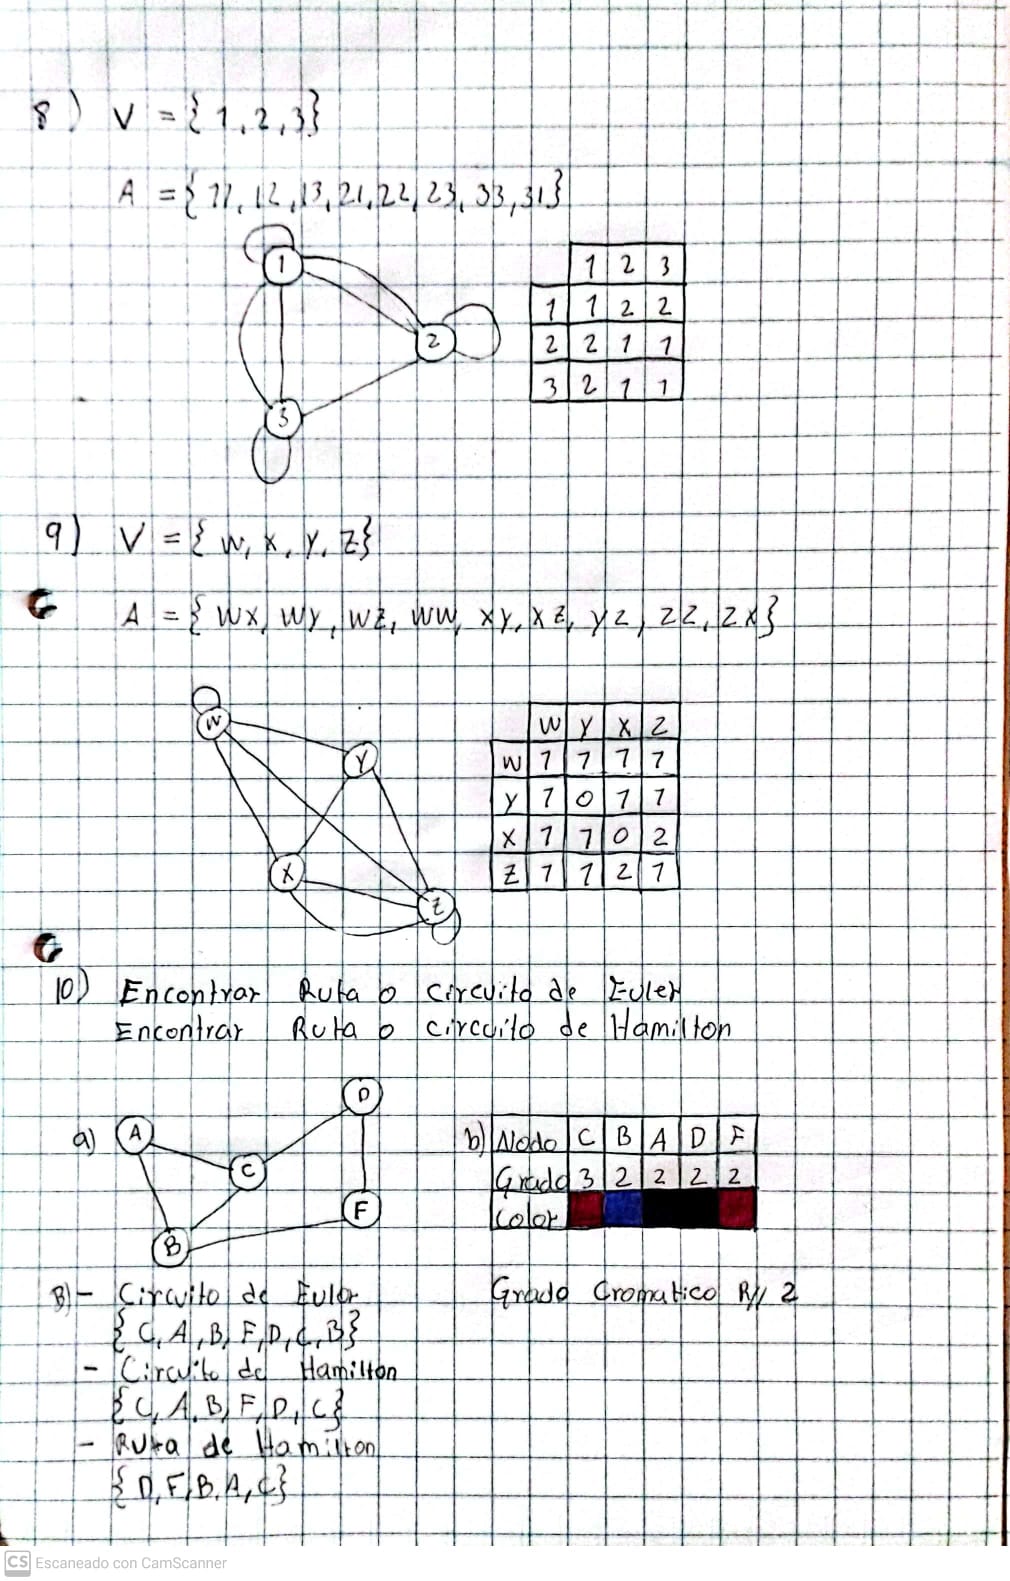 8) V = { 1, 2, 3}
A = { 11, 12, 13, 21, 22, 23, 33, 31}
1
2
3
1 2 3
1 1 2 2
2 2 1 1
3 2 1 1
9) V = { W, X, Y, Z}
A = { WX, WY, WZ, WW, XY, XZ, YZ, ZZ, ZX}
W
Y
X
Z
W Y X Z
W 1 1 1 1
Y 1 0 1 1
X 1 1 0 2
Z 1 1 2 1
10) Encontrar Ruta o circuito de Euler
Encontrar Ruta o circuito de Hamilton
a)
A
D
C
F
B
b) Nodo C B A D F
Grado 3 2 2 2 2
Color
B) - Circuito de Euler
{ C, A, B, F, D, C, B}
- Circuito de Hamilton
{ C, A, B, F, D, C}
- Ruta de Hamilton
{ D, F, B, A, C}
Grado Cromatico R// 2
CS Escaneado con CamScanner